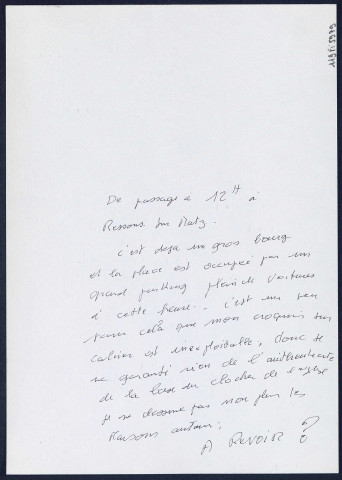 119Fi5979
De passage à 12H à
Ressons sur Matz.
c'est déjà un gros bourg
et la place est occupée par un
grand parking plein de voitures
à cette heure. c'est un peu
pour cela que mon croquis sur
cahier est inexploitable, donc je
ne garantis rien de l'authenticité
de la base du clocher de l'église
je ne dessine pas non plus les
Maisons autour.
A REVOIR ?